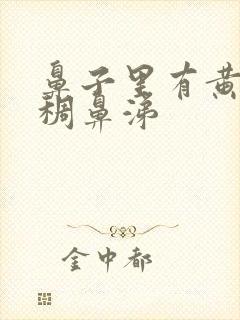 鼻子里有黄
稠鼻涕
金中都